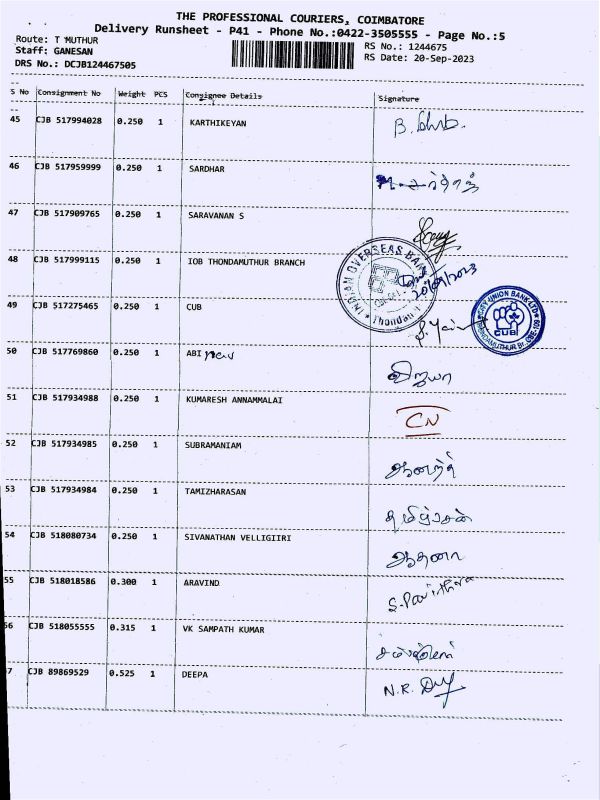 THE PROFESSIONAL COURIERS, COIMBATORE
Delivery Runsheet - P41 - Phone No.:0422-3505555 - Page No.:5
Route: T MUTHUR
RS No.: 1244675
Staff: GANESAN
RS Date: 20-Sep-2023
DRS No.: DCJB124467505
S No Consignment No Weight PCS Consignee Details Signature
45 CJB 517994028 0.250 1 KARTHIKEYAN
46 CJB 517959999 0.250 1 SARDHAR
47 CJB 517909765 0.250 1 SARAVANAN S
48 CJB 517999115 0.250 1 IOB THONDAMUTHUR BRANCH
INDIAN OVERSEAS BANK
20/09/2023
49 CJB 517275465 0.250 1 CUB
CITY UNION BANK LTD
CUB
50 CJB 517769860 0.250 1 ABI விஜயா
51 CJB 517934988 0.250 1 KUMARESH ANNAMMALAI CN
52 CJB 517934985 0.250 1 SUBRAMANIAM ஆனந்த்
53 CJB 517934984 0.250 1 TAMIZHARASAN தமிழ்ரசன்
54 CJB 518080734 0.250 1 SIVANATHAN VELLIGIIRI ஆதனா
55 CJB 518018586 0.300 1 ARAVIND S. Pavithra
56 CJB 518055555 0.315 1 VK SAMPATH KUMAR
57 CJB 89869529 0.525 1 DEEPA N.R.